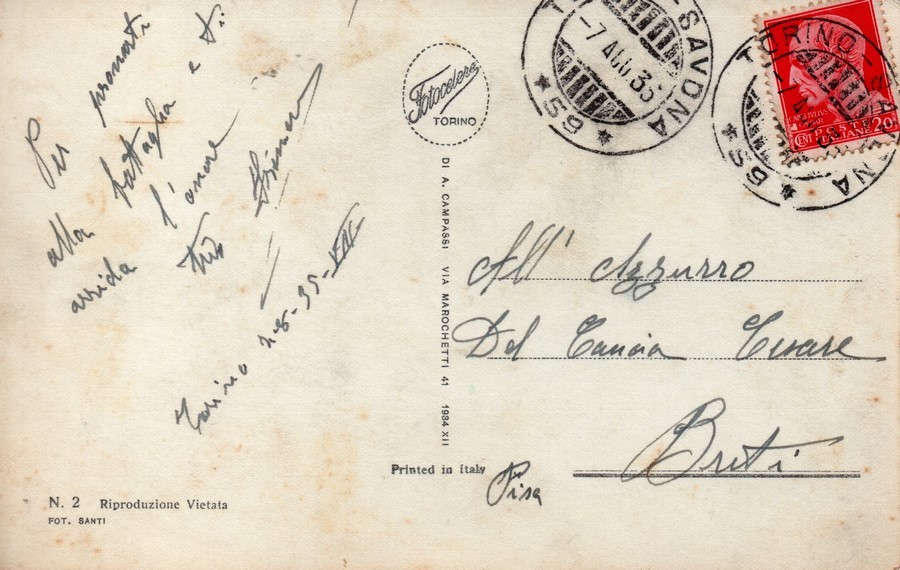 Per prepararti
alla battaglia e ti
arrida l'onore
tuo
Torino 7-8-35-XIII
Fotocelere
TORINO
DI A. CAMPASSI VIA MAROCHETTI 41 1934 XII
TORINO - SAVONA
- 7 AGO. 35
* 59 *
TORINO - SAVONA
* 59 *
POSTE
ITALIANE
CENT 20
All' Azzurro
Del Cancia Cesare
Buti
Pisa
Printed in Italy
N. 2 Riproduzione Vietata
FOT. SANTI